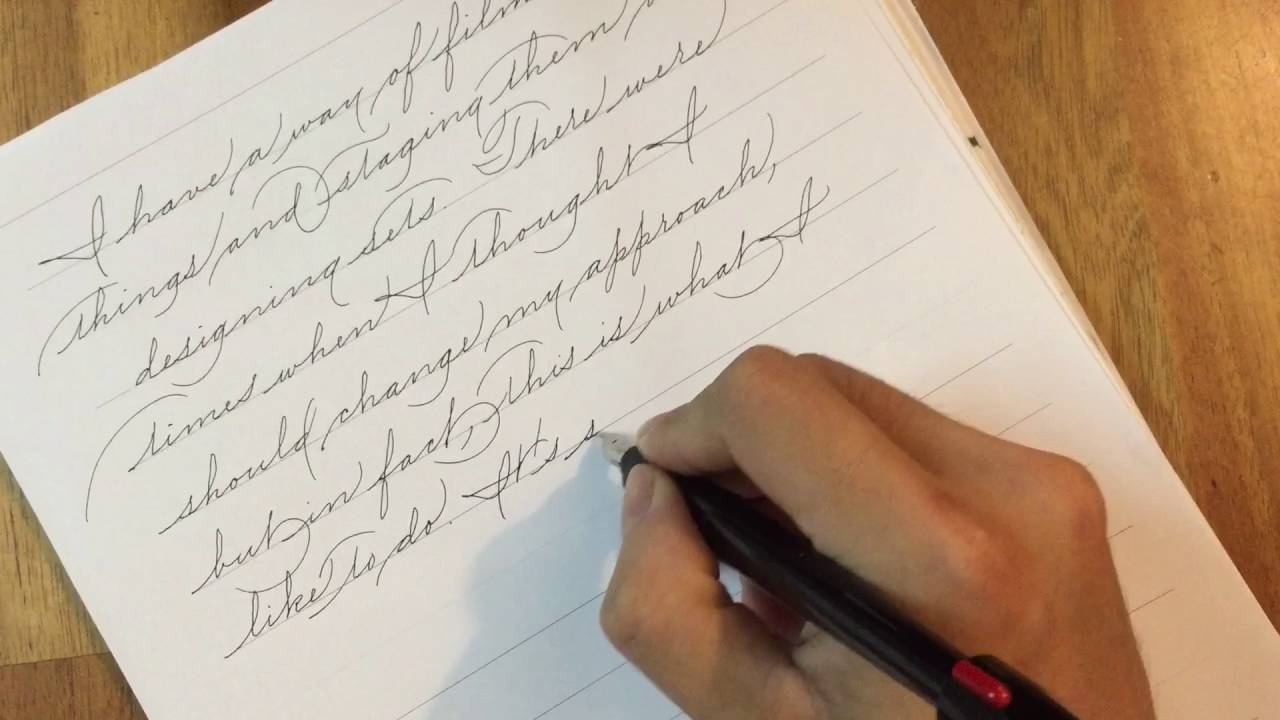 I have a way of film
things and staging them
designing sets. There were
times when I thought I
should change my approach,
but in fact, this is what I
like to do. It's s